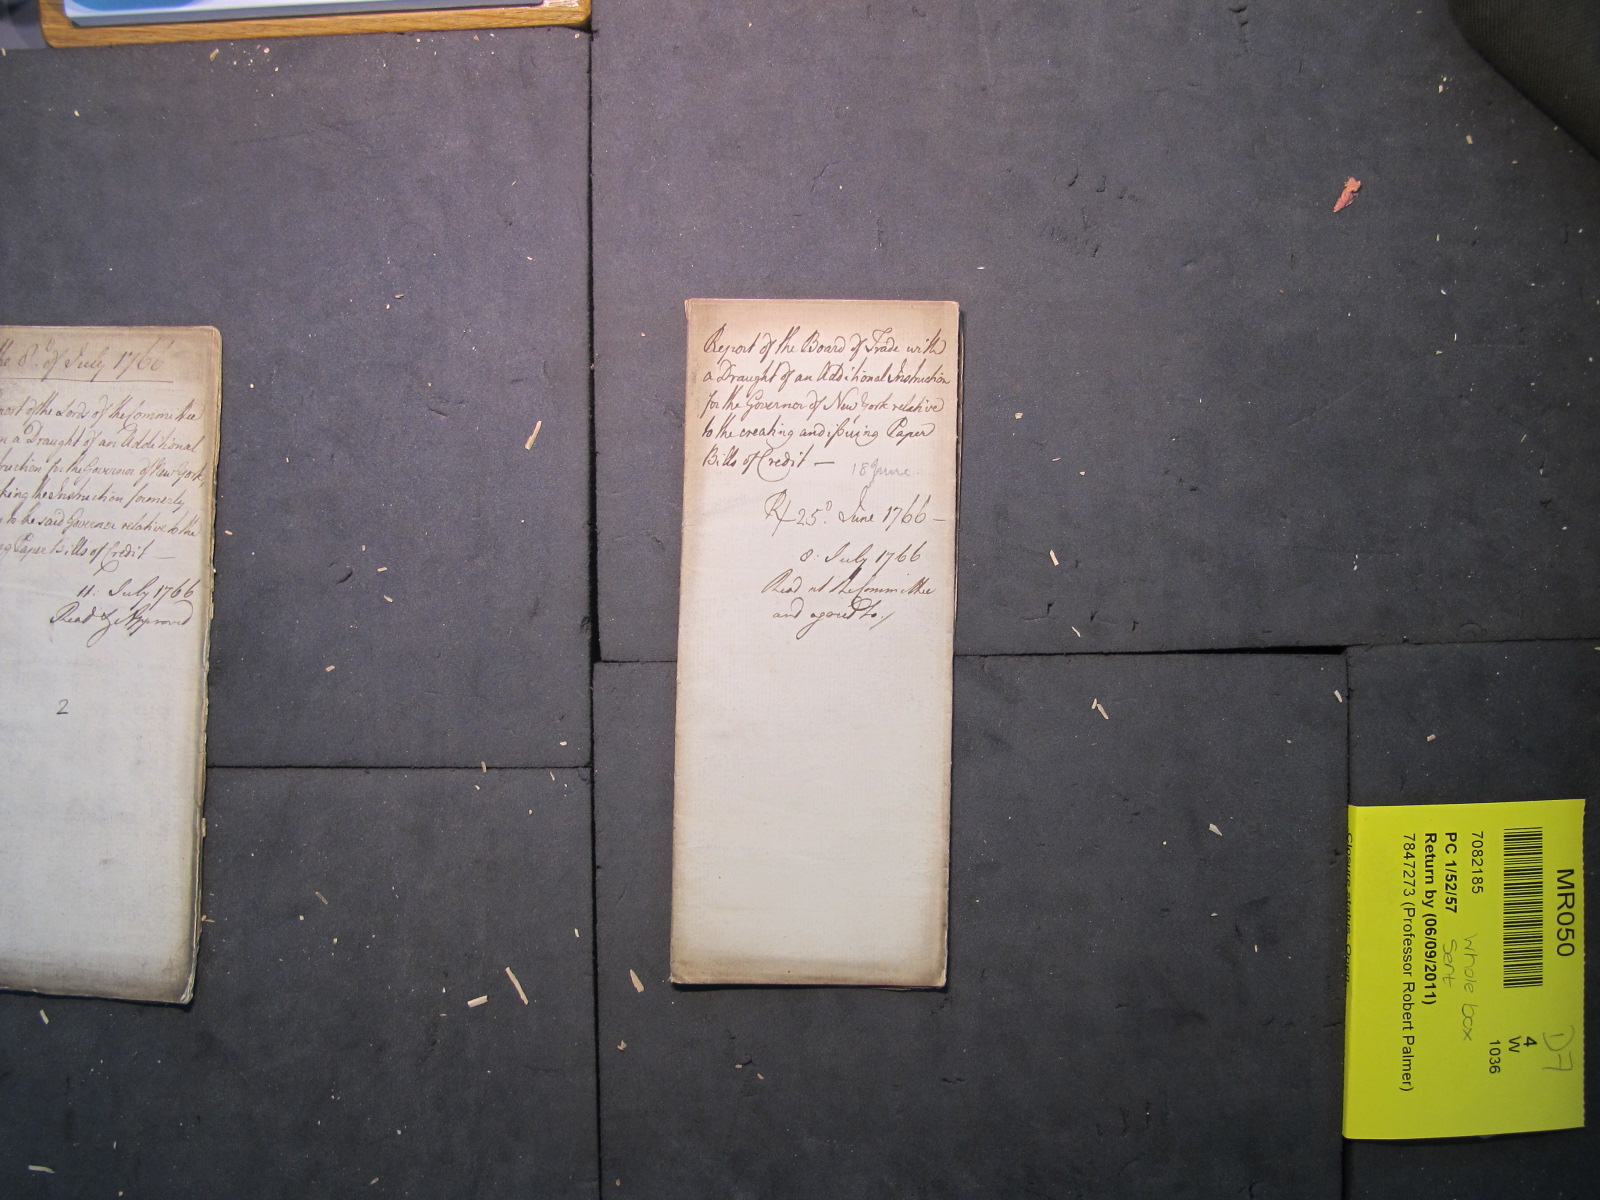 the 8th of July 1766
port of the Lords of the Committee
n a Draught of an Additional
truction for the Governor of New York,
king the Instruction formerly
n to the said Governor relative to the
ng Paper Bills of Credit —
11. July 1766
Read & Approved
2
Report of the Board of Trade with
a Draught of an Additional Instruction
for the Governor of New York relative
to the creating and issuing Paper
Bills of Credit —
18 June
Rx 25th June 1766 —
8. July 1766
Read at the Committee
and agreed to /
MR050
7082185
PC 1/52/57
Return by (06/09/2011)
7847273 (Professor Robert Palmer)
Closure status: Open
whole box
Sent
4
W
1036
D7